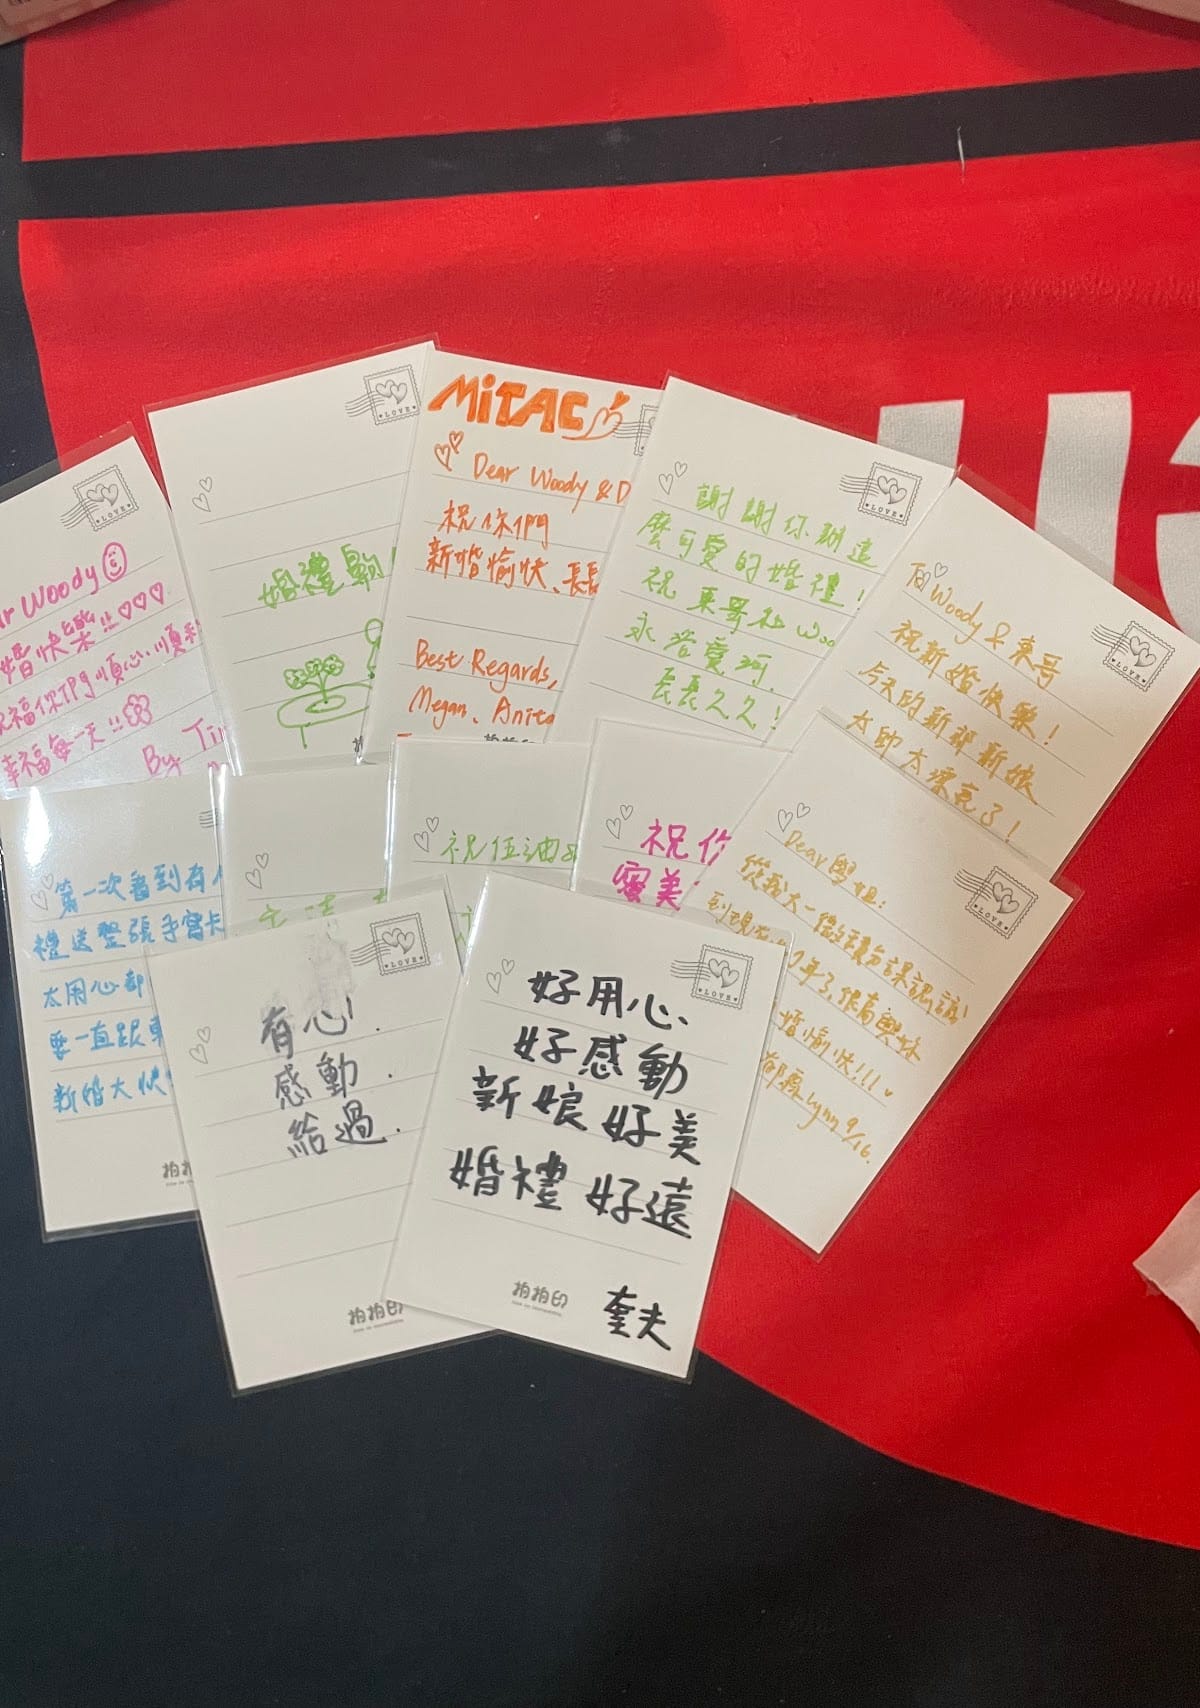 LOVE
r Woody
婚快樂!!
祝福你們順心順利
幸福每一天!!
By Ti
LOVE
婚禮
MiTAC
Dear Woody & D
祝你們
新婚愉快、長長
Best Regards,
Megan、Anita
LOVE
謝謝你辦這
麼可愛的婚禮!
祝東哥和Woo
永浴愛河、
長長久久!
LOVE
Woody & 東哥
祝新婚快樂!
今天的新郎新娘
太帥太漂亮了!
第一次看到有人
禮送整張手寫卡
太用心都
要一直跟東
新婚大快
拍拍印
祝伍迪
祝你
LOVE
Dear 學姐:
從我大一微積分課認識
到現在 年了,很高興妹
婚愉快!!!
Lynn 9/16.
LOVE
有心.
感動.
給過.
拍拍印
LOVE
好用心、
好感動
新娘好美
婚禮好遠
拍拍印
奎夫